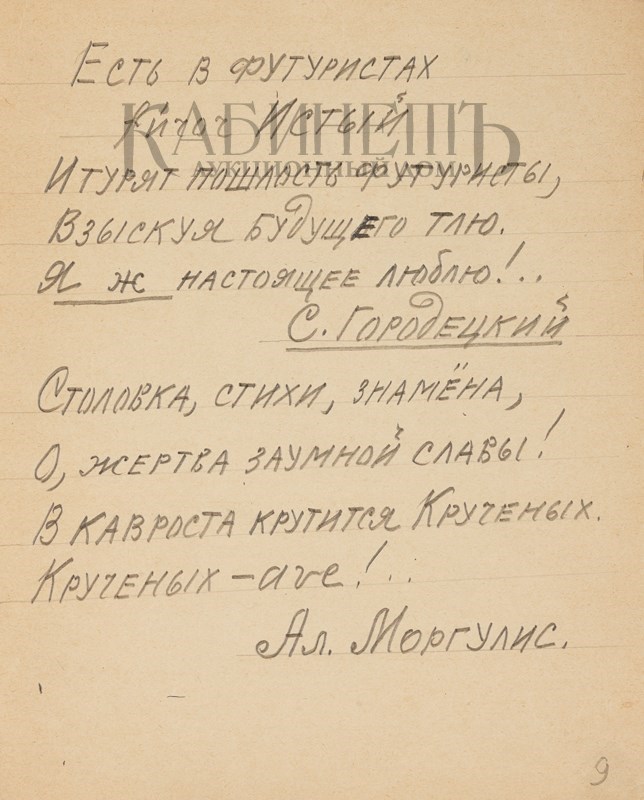 Есть в футуристах
КАБИНЕТЪ
АУКЦИОННЫЙ ДОМ
Истый
И турят пошлость футуристы,
Взыскуя будущего тлю.
Я ж настоящее люблю!..
С. Городецкий
Столовка, стихи, знамёна,
О, жертва заумной славы!
В Кавроста крутится Крученых.
Крученых – ave!..
Ал. Моргулис.
9